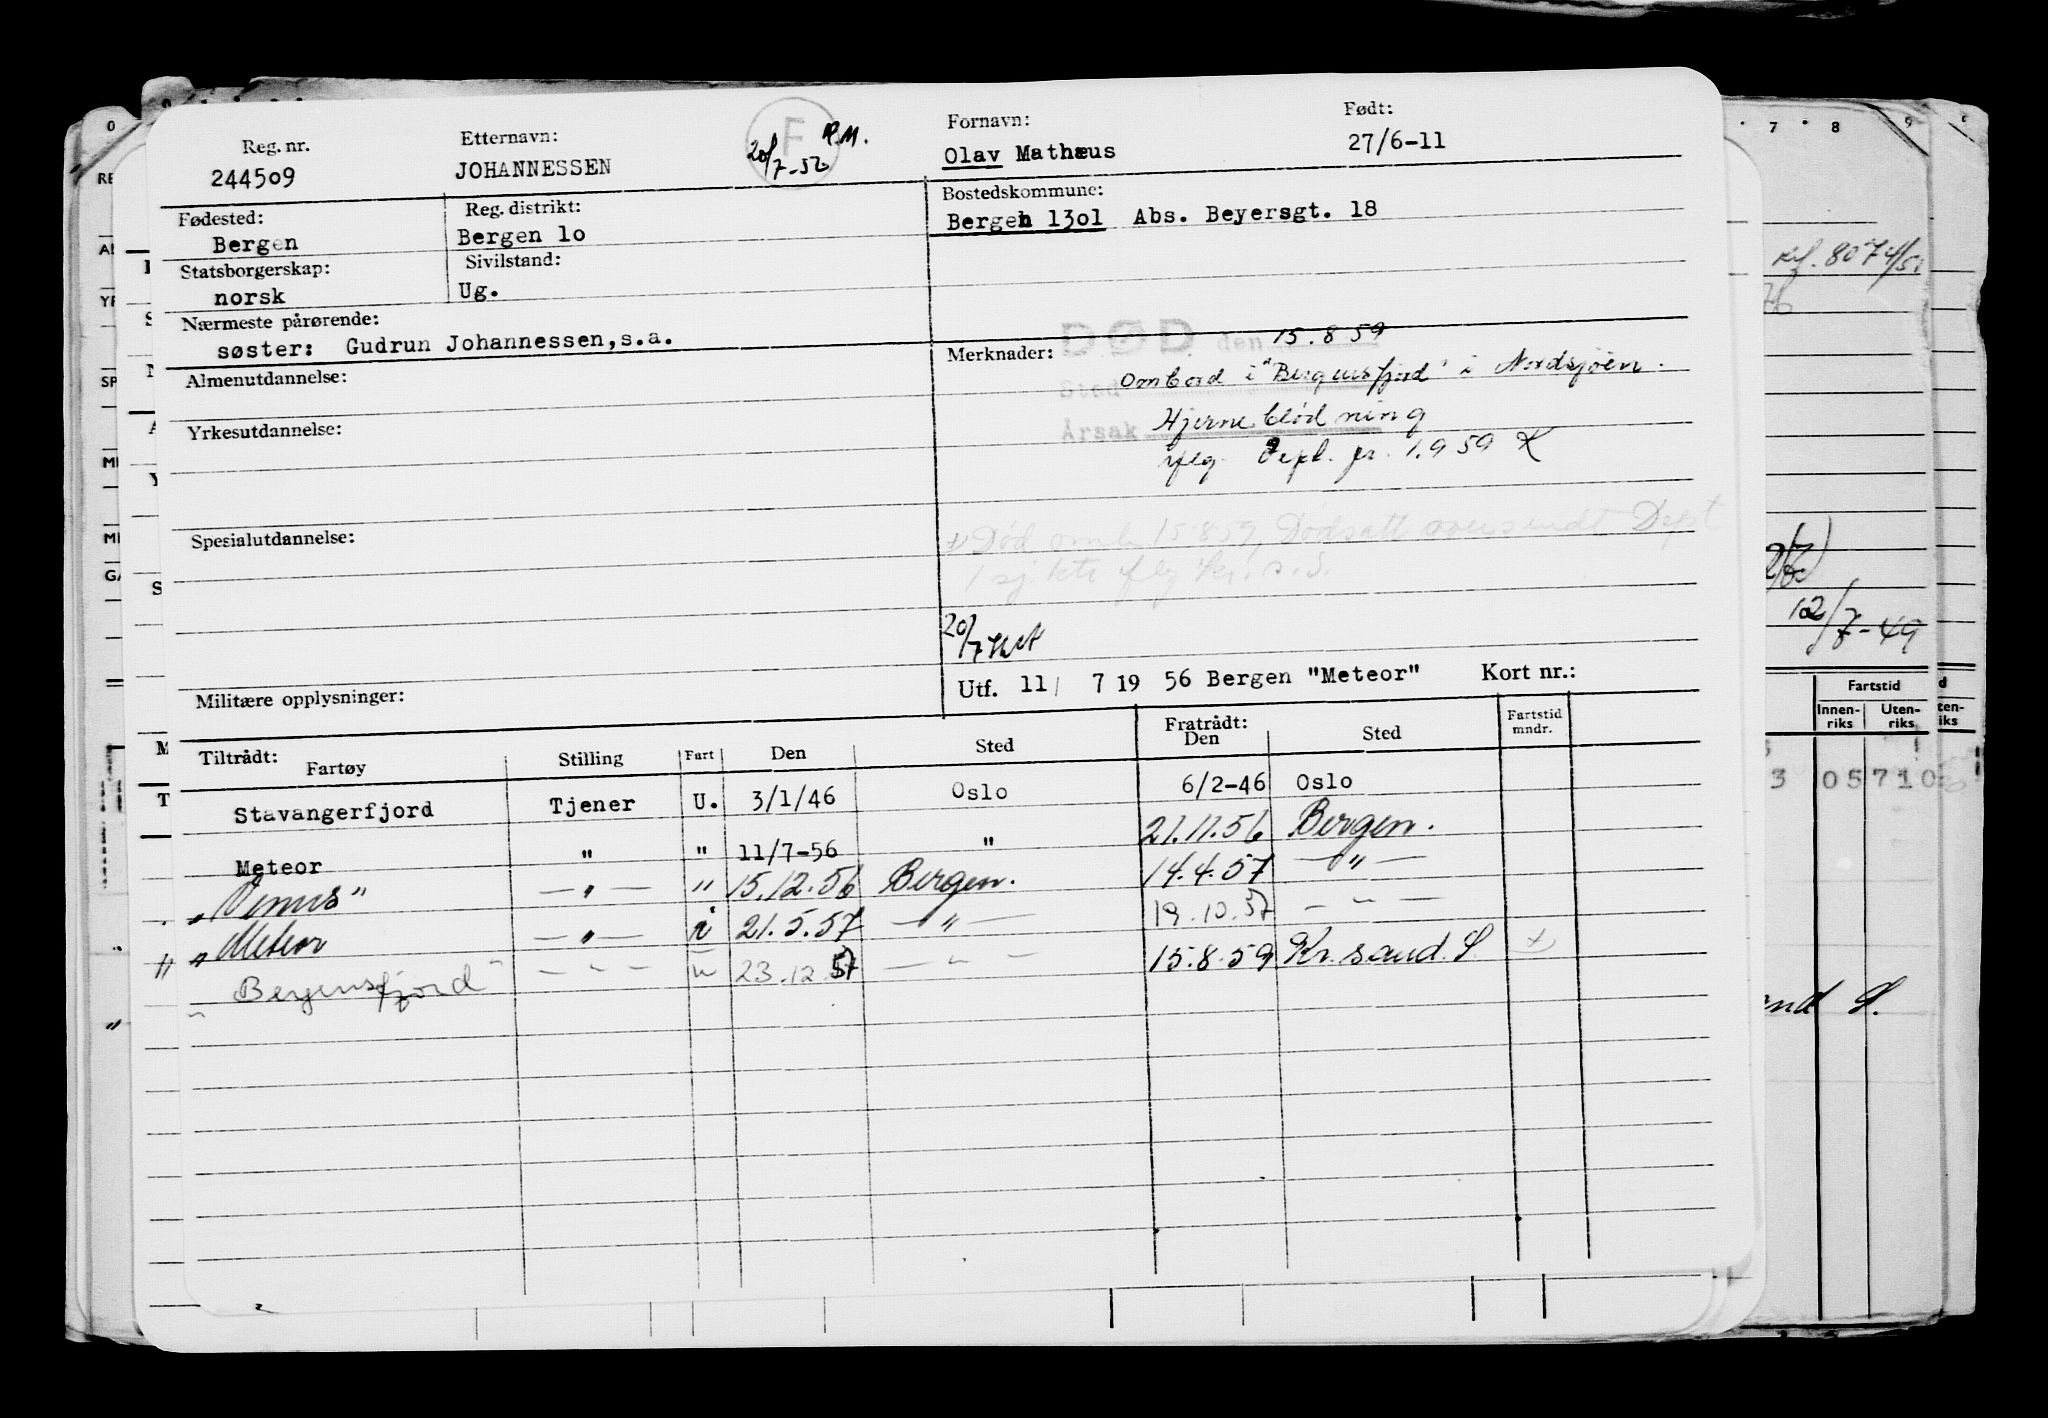 Reg. nr. Etternavn: F R.M. Fornavn: Født:
244509 JOHANNESSEN 20/7-52 Olav Mathæus 27/6-11
Fødested: Reg. distrikt: Bostedskommune:
Bergen Bergen 1o Bergen 13o1 Abs. Beyersgt. 18
Statsborgerskap: Sivilstand:
norsk Ug.
Nærmeste pårørende:
søster: Gudrun Johannessen,s.a.
Merknader: DØD den 15.8 59
Sted Ombord i "Bergensfjord" i Nordsjøen.
Almenutdannelse:
Årsak Hjerneblødning
Yrkesutdannelse:
iflg. Dept. gr. 1.9 59 K
Spesialutdannelse:
x Død omb. 15859, Dødsatt oversendt Dept
iflg Kr.s.S.
20/7
Militære opplysninger: Utf. 11/ 7 19 56 Bergen "Meteor" Kort nr.:
Tiltrådt: Fratrådt: Fartstid mndr.
Fartøy Stilling Fart Den Sted Den Sted
Stavangerfjord Tjener U. 3/1/46 Oslo 6/2-46 Oslo
Meteor " " 11/7-56 " 21.11.56 Bergen.
" Venus" — " — " 15.12.56 Bergen. 14.4.57 — " —
" Meteor — " — i 21.5.57 — " — 19.10.57 — " —
" Bergensfjord" — " — u 23.12.57 — " — 15.8.59 Kr.sand. S. x
0
7 8 9
RE
YR
SP
GA
8074/5
12/7-49
Fartstid
Innen-riks Uten-riks
3 05710
and S.